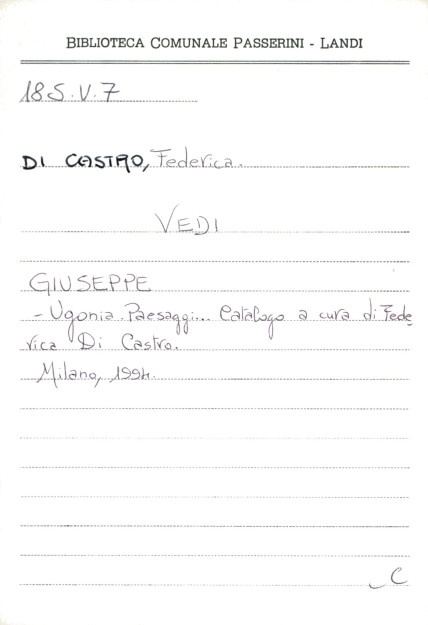 BIBLIOTECA COMUNALE PASSERINI - LANDI
18S.V.7
DI CASTRO, Federica.
VEDI
GIUSEPPE
- Ugonia. Paesaggi... Catalogo a cura di Fede
rica Di Castro.
Milano, 1994.
C